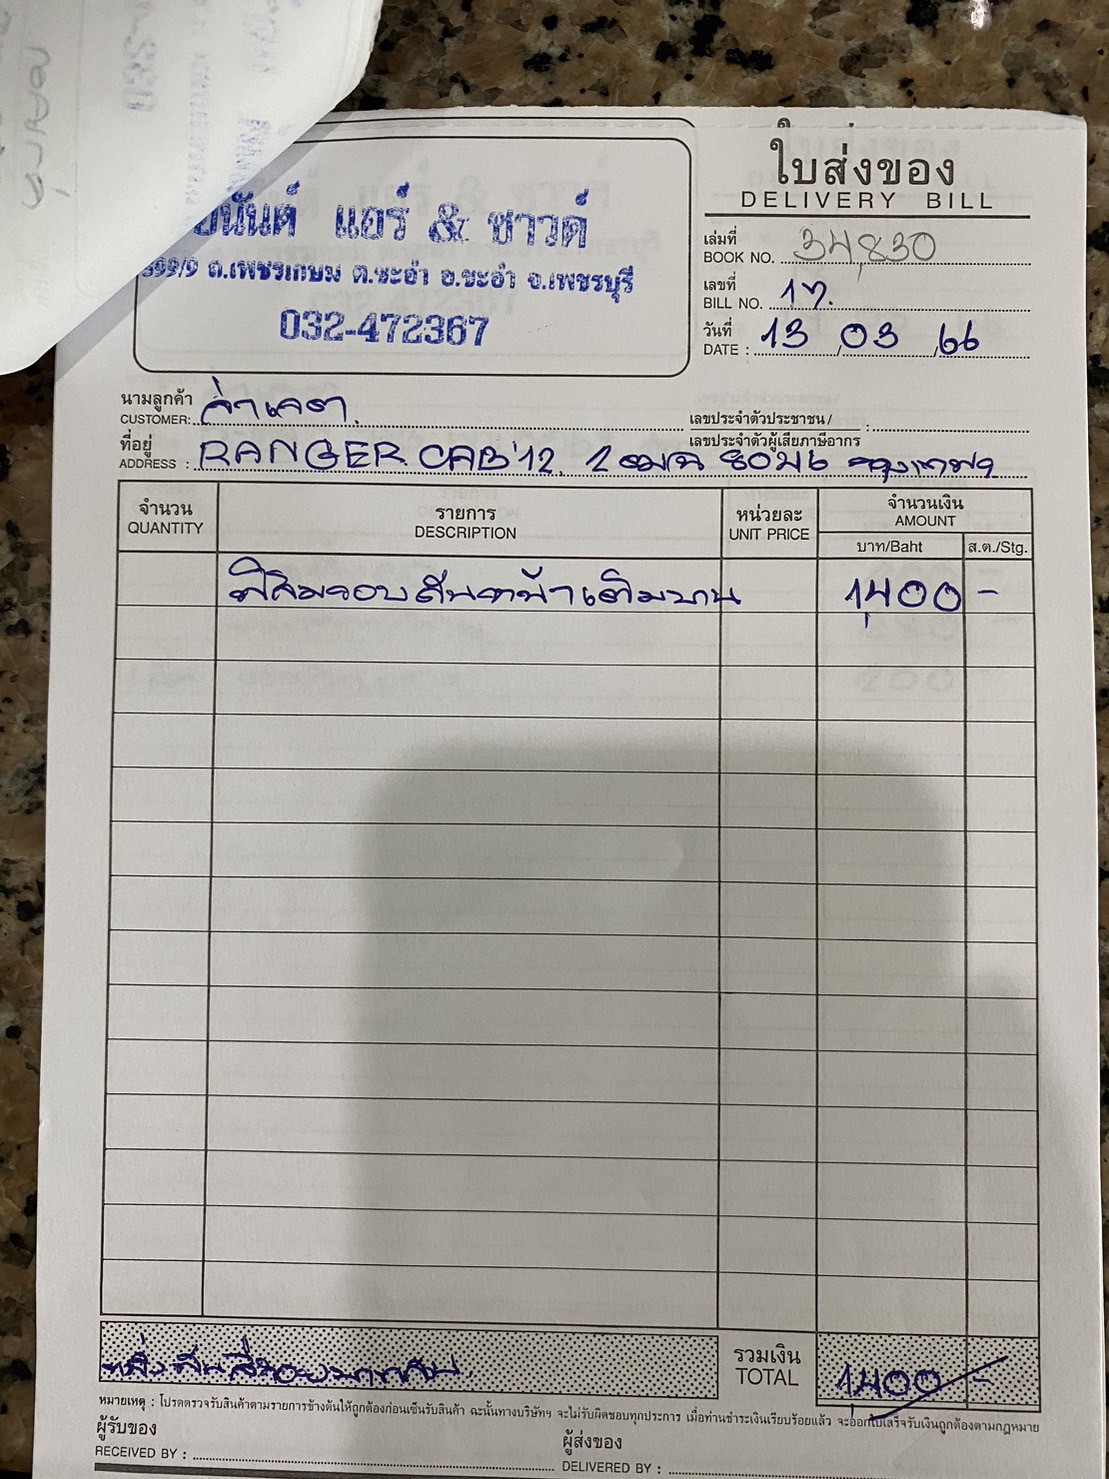 อนันต์ แอร์ & ซาวด์
399/9 ถ.เพชรเกษม ต.ชะอำ อ.ชะอำ จ.เพชรบุรี
032-472367
ใบส่งของ
DELIVERY BILL
เล่มที่
BOOK NO. 34,830
เลขที่
BILL NO. 17.
วันที่
DATE : 13 / 03 / 66
นามลูกค้า
CUSTOMER:
เลขประจำตัวประชาชน/
เลขประจำตัวผู้เสียภาษีอากร :
ที่อยู่
ADDRESS : RANGER CAB'12. กรุงเทพฯ
จำนวน
QUANTITY
รายการ
DESCRIPTION
หน่วยละ
UNIT PRICE
จำนวนเงิน
AMOUNT
บาท/Baht ส.ต./Stg.
ฟิล์มรอบคันหน้าเต็มบาน 1,400 -
หนึ่งพันสี่ร้อยบาทถ้วน
รวมเงิน
TOTAL
1,400 -
หมายเหตุ : โปรดตรวจรับสินค้าตามรายการข้างต้นให้ถูกต้องก่อนเซ็นรับสินค้า ฉะนั้นทางบริษัทฯ จะไม่รับผิดชอบทุกประการ เมื่อท่านชำระเงินเรียบร้อยแล้ว จะออกใบเสร็จรับเงินถูกต้องตามกฎหมาย
ผู้รับของ
RECEIVED BY :
ผู้ส่งของ
DELIVERED BY :